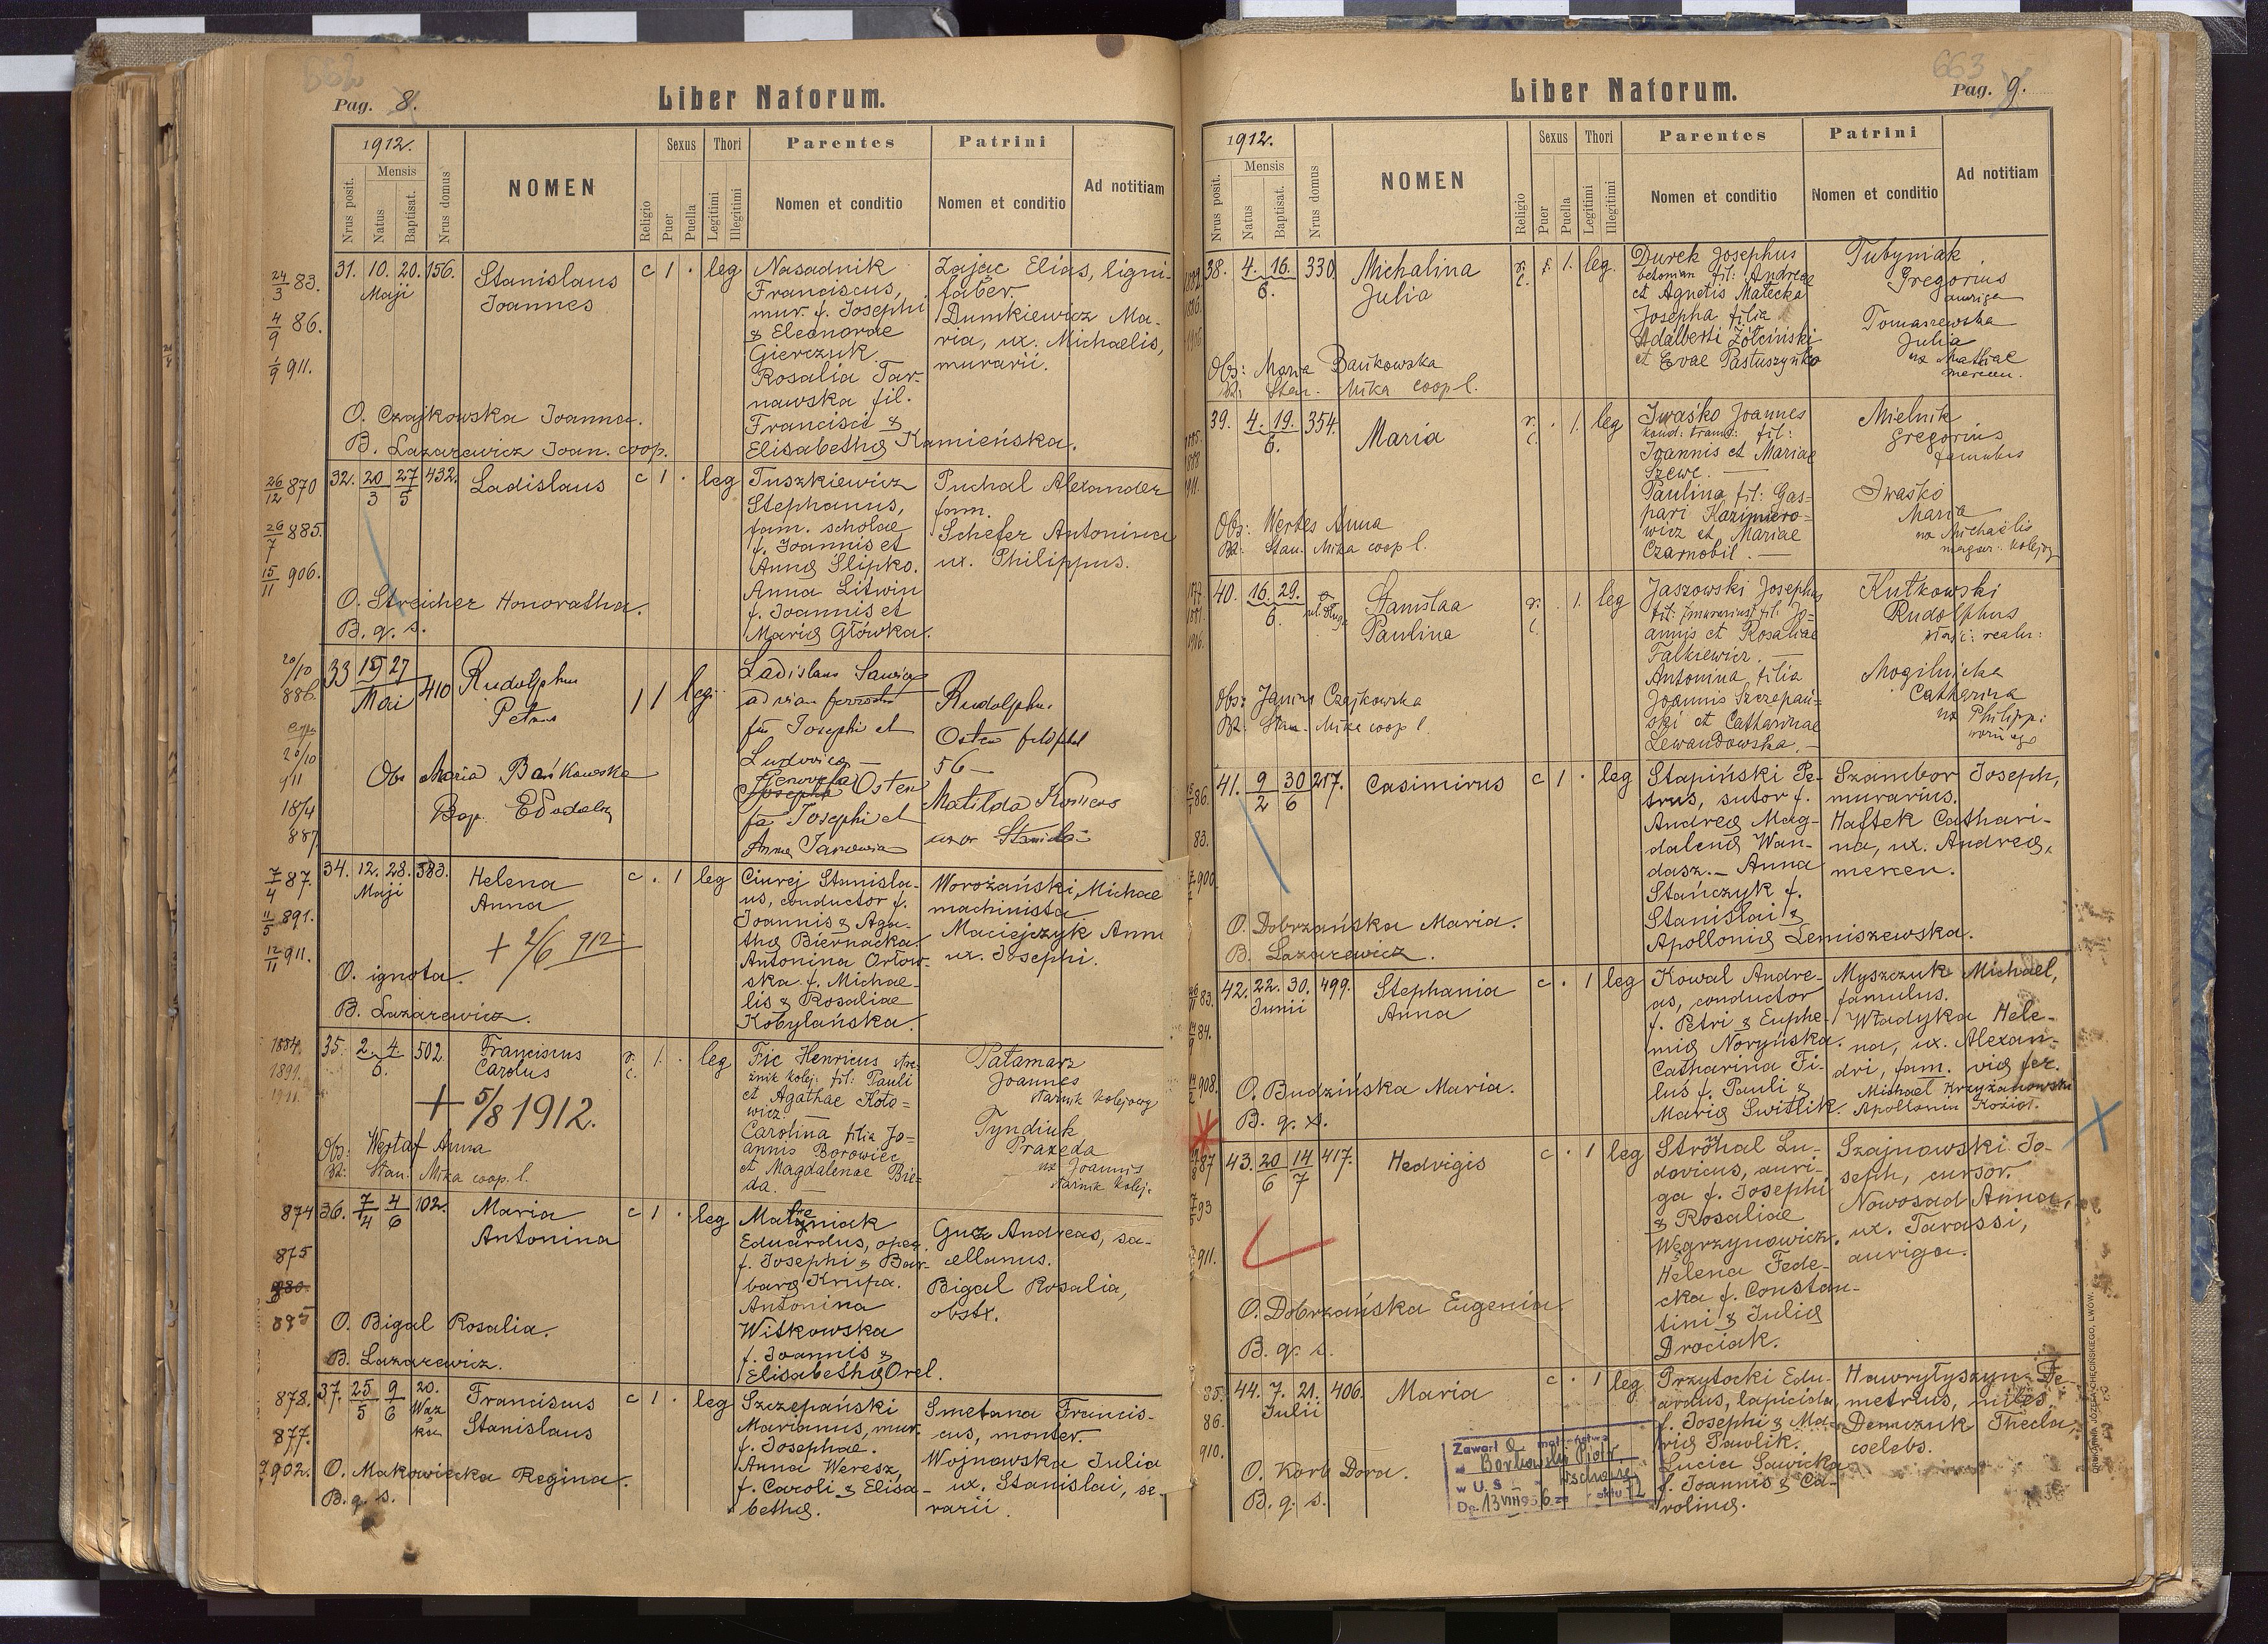 662
Pag. 8.
Liber Natorum.
1912.
Mensis
Nrus posit.
Natus
Baptisat.
Nrus domus
NOMEN
Religio
Sexus
Puer
Puella
Thori
Legitimi
Illegitimi
Parentes
Nomen et conditio
Patrini
Nomen et conditio
Ad notitiam
24/3 83.
4/9 86.
1/9 911.
31. 10. 20. 156.
Maji
Stanislaus
Joannes
c 1 . leg
Nasadnik
Franciscus,
mur. f. Josephi
& Eleonorae
Gierczuk.
Rosalia Tar-
nawska fil.
Francisci &
Elisabethę Kamieńska.
Zając Elias, ligni-
faber.
Dumkiewicz Ma-
ria, ux. Michaelis,
murarii.
O. Czajkowska Joanna.
B. Lazarewicz Joan. coop.
26/12 870
26/7 885.
15/11 906.
32. 20/3 27/5 432.
Ladislaus
c 1 . leg
Tuszkiewicz
Stephanus,
fam. scholae
f. Joannis et
Annę Slipko.
Anna Litwin
f. Joannis et
Marię Główka.
Puchal Alexander
fam.
Schefer Antonina
ux. Philippus.
O. Streicher Honoratha.
B. q. s.
20/10
886.
20/10
911
18/4
887.
33 15 27
Mai
410
Rudolphus
Petrus
1 1 leg.
Ladislaus
ad viam
fil Josephi et
Ludovica
Genovefa
Josepha Osten
fil Josephi et
Anna
Rudolphus
Osten
56
Matilda
uxor
Obs Maria Bańkowska
Bap.
7/4 87.
11/5 891.
12/11 911.
34. 12. 28. 383.
Maji
Helena
Anna
+ 2/6 912
c . 1 leg
Ciurej Stanisla-
us, conductor f.
Joannis & Aga-
thę Biernacka.
Antonina Orłow-
ska f. Michae-
lis & Rosaliae
Kobylańska.
Worożański Michae
machinista
Maciejczyk Anna
ux. Josephi.
O. ignota.
B. Lazarewicz.
1884.
1891.
1911.
35. 2. 4. 502.
6.
Franciscus
Carolus
+ 5/8 1912.
r. c. 1. . leg
Fic Henricus
żnik kolej: fil: Pauli
et Agathae Koto=
wicz.
Carolina filia Jo=
annis Borowiec
et Magdalenae Bie=
da.
Patamarz
Joannes
kolejowy
Tyndiuk
Praxeda
ux Joannis
kolej.
Obs: Anna
Bt: Stan. Mika coop. l.
874
875
880.
885
36. 7/4 4/6 102.
Maria
Antonina
c 1 . leg
Eduardus, oper.
f. Josephi & Bar-
barę Krupa.
Antonina
Witkowska
f. Joannis &
Elisabethę Orel.
Guz Andreas, sa-
cellanus.
Bigal Rosalia,
obstr.
O. Bigal Rosalia.
B. Lazarewicz.
878.
877.
902.
37. 25/5 9/6 20.
Franciscus
Stanislaus
c 1 . leg
Szczepański
Marianus, mur.
f. Josephae.
Anna Weresz,
f. Caroli & Elisa-
bethę.
Smetana Francis-
cus, monter.
Wojnowska Julia
ux. Stanislai, se-
rarii.
O. Makowiecka Regina.
B. q. s.
663
Liber Natorum.
Pag. 9.
1912.
Mensis
Nrus posit.
Natus
Baptisat.
Nrus domus
NOMEN
Religio
Sexus
Puer
Puella
Thori
Legitimi
Illegitimi
Parentes
Nomen et conditio
Patrini
Nomen et conditio
Ad notitiam
38. 4. 16. 330
6.
Michalina
Julia
r. c. 1. leg.
Durek Josephus
fil: Andreae
et Agnetis Małecka
Josepha filia
Adalberti Żółciński
et Evae Pastuszynko
Tubyniak
Gregorius
auriga
Tomaszewska
Julia
ux Mathiae
mercen.
Obs: Maria Bańkowska
Bt: Stan. Mika coop l.
39. 4. 19. 354.
6.
Maria
r. c. . 1. leg
Iwaśko Joannes
kond: tramw: fil:
Joannis et Mariae
Szewc.
Paulina fil: Gas=
pari Kazimiero=
wicz et Mariae
Czarnobil.
Mielnik
Gregorius
famulus
Iwaśko
Maria
ux Michaelis
magaz: kolejow
Obs: Wertes Anna
Bt: Stan. Mika coop l.
40. 16. 29.
6.
Stanisłaa
Paulina
r. c. . 1. leg
Jaszowski Josephus
fil: Jo=
annis et Rosaliae
Falkiewicz.
Antonina filia
Joannis Szczepań=
ski et Catharinae
Lewandowska.
Kutkowski
Rudolphus
właśc: realn:
Mogilnicka
Catharina
ux Philippi
Obs: Janina Czajkowska
Bt: Stan. Mika coop l.
86.
83.
900.
41. 9/2 30/6 217.
Casimirus
c 1 . leg
Stapiński Pe-
trus, sutor f.
Andreę Mag-
dalenę Wan-
dasz. Anna
Stańczyk f.
Stanislai &
Apollonię Lemiszewska.
Szambor Joseph,
murarius.
Haftek Cathari-
na, ux. Andreę,
mercen.
O. Dobrzańska Maria.
B. Lazarewicz.
83.
84.
908.
42. 22. 30. 499.
Junii
Stephania
Anna
c . 1 leg
Kowal Andre-
as, conductor
f. Petri & Euphe-
mię Noryńska.
Catharina Fi-
luś f. Pauli &
Marię Switlik.
Myszczuk Michael,
famulus.
Władyka Hele-
na, ux. Alexan-
dri, fam. vię fer.
Michael Krzyżanowski
Apollonia Kozioł.
O. Budzińska Maria.
B. q. s.
87
93
911.
43. 20/6 14/7 417.
Hedvigis
c . 1 leg
Strohal Lu-
dovicus, auri-
ga f. Josephi
& Rosaliae
Węgrzynowicz.
Helena Fede-
cka f. Constan-
tini & Julię
Drociak.
Szajnowski Jo-
seph, cursor.
Nowosad Anna,
ux. Tarassi,
auriga.
O. Dobrzańska Eugenia.
B. q. s.
85.
86.
910.
44. 7. 21. 406.
Julii
Maria
c . 1 leg
Przytocki Edu-
ardus, lapicida
f. Josephi & Ma-
rię Pawlik.
Lucia Sawicka
f. Joannis & Ca-
rolinę.
Hawryłyszyn De-
metrius, miles
Demczuk Thecla,
coelebs.
O. Korb Dora.
B. q. s.
Zawarł a małżeństwo
Piotr
w U. S.
Dn. 13 VIII 1956